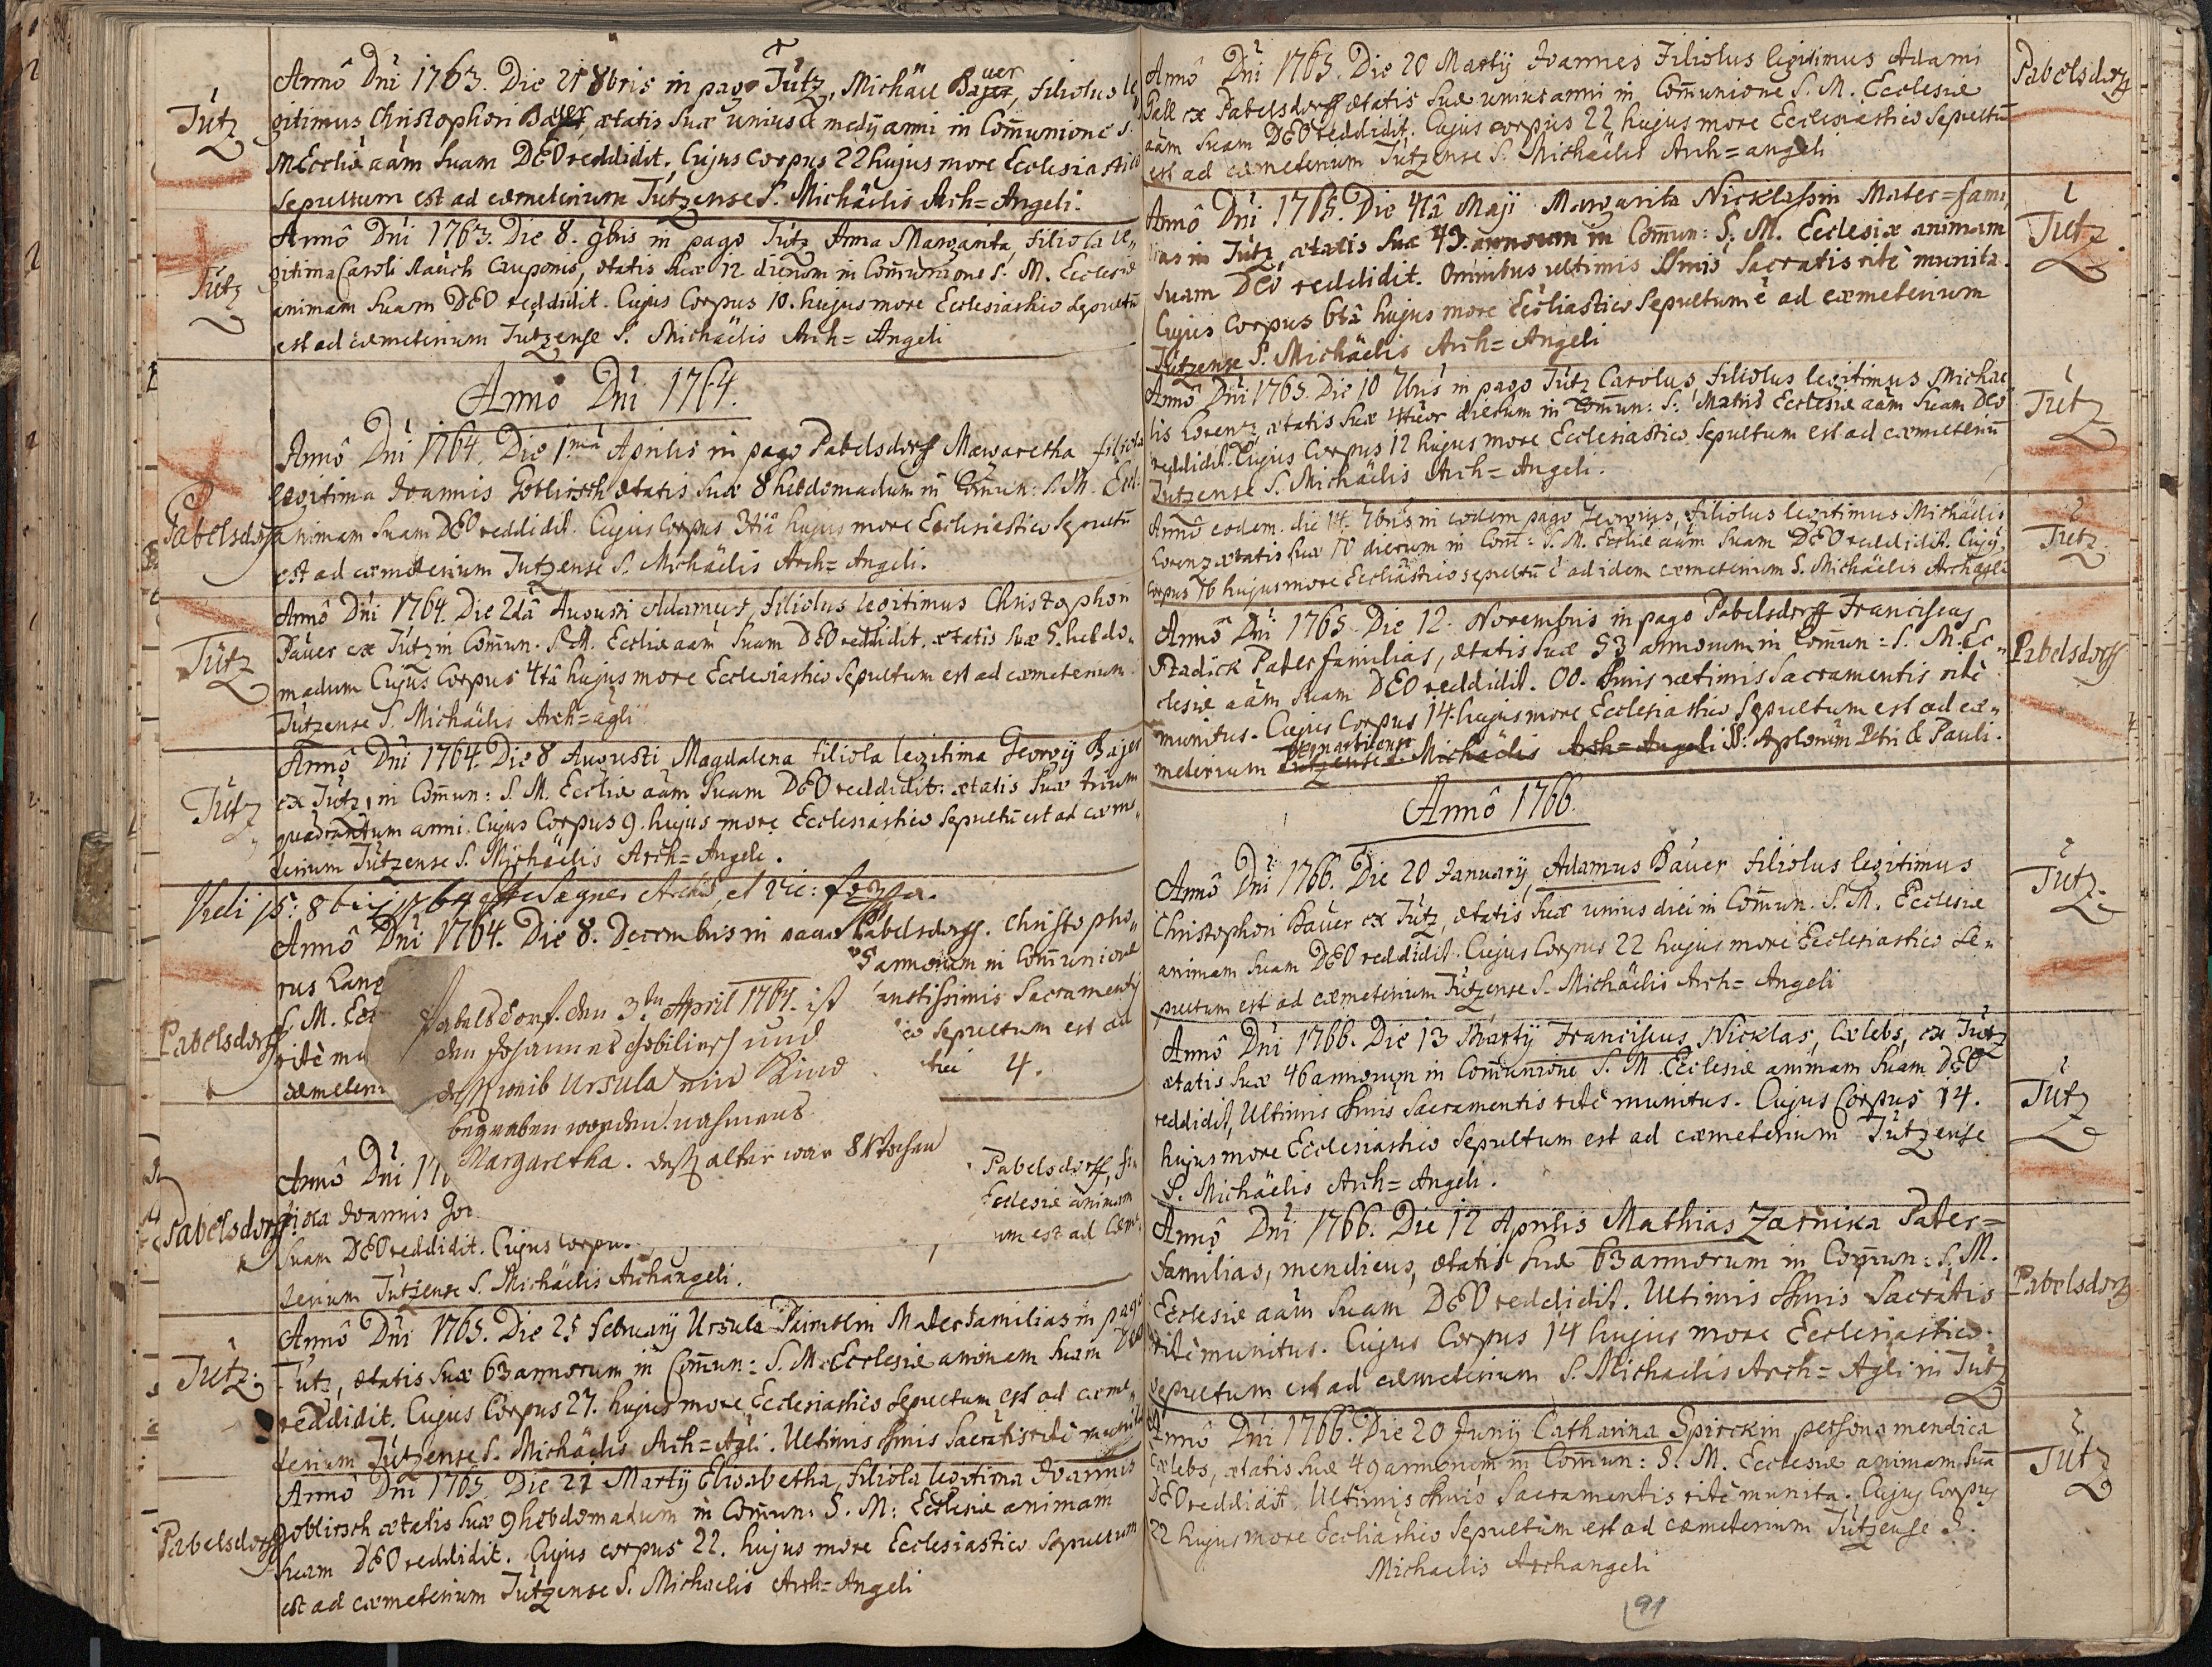 Tütz
Annô Dni 1763. Die 21 8bris in pago Tütz, Michäel Bauer, filiolus le
gitimus Christophori Bauer, ætatis suæ unius & medij anni in Com̄unione S.
M Eccliæ aām suam DEO reddidit, Cujus Corpus 22 hujus more Ecclesiastico
sepultum est ad cæmeterium Tützense S. Michäelis Arch=Angeli.
Tütz
Annô Dni 1763. Die 8. 9bris in pago Tütz Anna Margarita, filiola le„
gitima Caroli Rauch Cauponis, ætatis suæ 12 dierum in Com̄unione S. M. Ecclesiæ
animam suam DEO reddidit. Cujus Corpus 10. hujus more Ecclesiastico sepultū
est ad cæmeterium Tützense S. Michäelis Arch=Angeli
Annô Dni 1764.
Pabelsdorff
Annô Dni 1764. Die 1mâ Aprilis in pago Pabelsdorff Margaretha filiola
legitima Joannis Goblirsch ætatis suæ 8 hebdomadum in Com̄un: S. M. Eccl:
animam suam DEO reddidit. Cujus Corpus 3tiâ hujus more Ecclesiastico Sepultū
est ad cæmeterium Tützense S. Michäelis Arch=Angeli.
Tütz
Annô Dni 1764. Die 2dâ Augusti Adamus, filiolus legitimus Christophori
Päuer ex Tütz in Com̄un. S. M. Eccliæ aam suam DEO reddidit. ætatis suæ 5. hebdo„
madum Cujus Corpus 4tâ hujus more Ecclesiastico Sepultum est ad cæmeterium
Tützense S. Michäelis Arch=agli
Tütz
Annô Dni 1764. Die 8 Augusti Magdalena filiola legitima Georgij Bajer
ex Tütz, in Com̄un: S. M. Eccliæ aām suam DEO reddidit: ætatis suæ trium
quadrantum anni. Cujus Corpus 9. hujus more Ecclesiastico Sepultū est ad cæme„
terium Tützense S. Michäelis Arch=Angeli.
Vidi 15: 8bris 1764
Pabelsdorff
Annô Dni 1764. Die 8. Decembris in pago Pabelsdorff. Christopho„
rus Lang
5 annorum in Com̄unione
S. M. Ecc
anctissimis Sacramentis
ritè mu
co sepultum est ad
cæmeteri
4.
Pabelsdorf. den 3ten April 1764. ist
dem Johannes Gobilirsch und
dess weib Ursula ein Kind
begraben worden. nahmens
Margaretha. dess alter war 8 Wochen
Pabelsdorff
Annô Dni 17
Pabelsdorff, fi
liola Joannis Go
Ecclesiæ animam
suam DEO reddidit. Cujus Corpu
um est ad Cæme
terium Tützense S. Michäelis Archangeli.
Tütz.
Annô Dni 1765. Die 25 February Ursula Paimblin Materfamilias in pago
Tütz, ætatis suæ 63 annorum in Com̄un: S. M. Ecclesiæ animam suam DEO
reddidit. Cujus Corpus 27. hujus more Ecclesiastico sepultum est ad cæme„
terium Tützense S. Michäelis Arch=Agli. Ultimis omnis Sacratis ritè munita
Pabelsdorff
Annô Dni 1765. Die 21 Martij Elisabetha, filiola legitima Joannis
Goblirsch ætatis suæ 9 hebdomadum in Com̄un: S. M: Ecclesiæ animam
suam DEO reddidit. Cujus corpus 22. hujus more Ecclesiastico sepultum
est ad cæmeterium Tützense S. Michaelis Arch=Angeli
Annô Dni 1765. Die 20 Martij Joannes Filiolus legitimus Adami
Pabelsdorff
Gall ex Pabelsdorff ætatis suæ unius anni in Com̄unione S. M. Ecclesiæ
aām suam DEO reddidit. Cujus corpus 22 hujus more Ecclesiastico Sepultū
est ad cæmeterium Tützense S. Michäelis Arch=angeli
Annô Dni 1765. Die 4tâ Maji Margarita Nicklassin Mater=fami
Tütz.
lias in Tütz, ætatis suæ 49. annorum in Com̄un: S. M. Ecclesiæ animam
suam DEO reddidit. Omnibus ultimis Smis Sacratis ritè munita.
Cujus Corpus 6tâ hujus more Eccliastico Sepultum ē ad cæmeterium
Tützense S. Michäelis Arch=Angeli
Annô Dni 1765. Die 10 7bris in pago Tütz Carolus, filiolus legitimus Michae
Tütz
lis Lorentz, ætatis suæ 4tuor dierum in Com̄un: S: Matris Ecclesiæ aām suam DEO
reddidit. Cujus Corpus 12 hujus more Ecclesiastico Sepultum est ad cæmeteriū
Tützense S. Michäelis Arch=Angeli.
Annô eodem. die 14. 7bris in eodem pago Georgius, filiolus legitimus Michäelis
Tütz
Lorenz ætatis suæ 10 dierum in Com̄: S. M. Eccliæ aām suam DEO reddidit. Cujus
corpus 16 hujus more Eccliastico sepultū ē ad idem cæmeterium S. Michäelis Archagli
Annô Dni 1765. Die 12. Novembris in pago Pabelsdorff Franciscus
Pabelsdorff
Stadick Paterfamilias, ætatis suæ 53 annorum in Com̄un: S. M. Ec„
clesiæ aām suam DEO reddidit. OO. Smis ultimis Sacramentis ritè
munitus. Cujus Corpus 14. hujus more Ecclesiastico Sepultum est ad cæ„
meterium Tützense S. Michäelis Arch=Angeli SS: Aplorum Petri & Pauli.
Annô 1766.
Annô Dni 1766. Die 20 January, Adamus Bäuer filiolus legitimus
Tütz.
Christophori Bäuer ex Tütz, ætatis suæ unius diei in Com̄un. S. M. Ecclesiæ
animam suam DEO reddidit. Cujus Corpus 22 hujus more Ecclesiastico Se„
pultum est ad cæmeterium Tützense S. Michäelis Arch=Angeli
Annô Dni 1766. Die 13 Martij Franciscus Nicklas, Cælebs, ex Tütz
ætatis suæ 46 annorum in Com̄unione S. M. Ecclesiæ animam suam DEO
Tütz
reddidit, Ultimis Smis Sacramentis ritè munitus. Cujus Corpus 14.
hujus more Ecclesiastico Sepultum est ad cæmeterium Tützense
S. Michäelis Arch=Angeli.
Annô Dni 1766. Die 12 Aprilis Mathias Zarnika Pater=
familias, mendicus, ætatis suæ 63 annorum in Com̄un: S. M.
Pabelsdorff
Ecclesiæ aām suam DEO reddidit. Ultimis Smis Sacratis
ritè munitus. Cujus Corpus 14 hujus more Ecclesiastico
sepultum est ad cæmeterium S. Michaelis Arch=Agli in Tütz
Annô Dni 1766. Die 20 Junij Catharina Spirckin persona mendica
Tütz
Cælebs, ætatis suæ 49 annorum in Com̄un: S. M. Ecclesiæ animam suā
DEO reddidit. Ultimis Smis Sacramentis ritè munita. Cujus Corpus
22 hujus more Eccliastico Sepultum est ad cæmeterium Tützense S.
Michaelis Archangeli
91